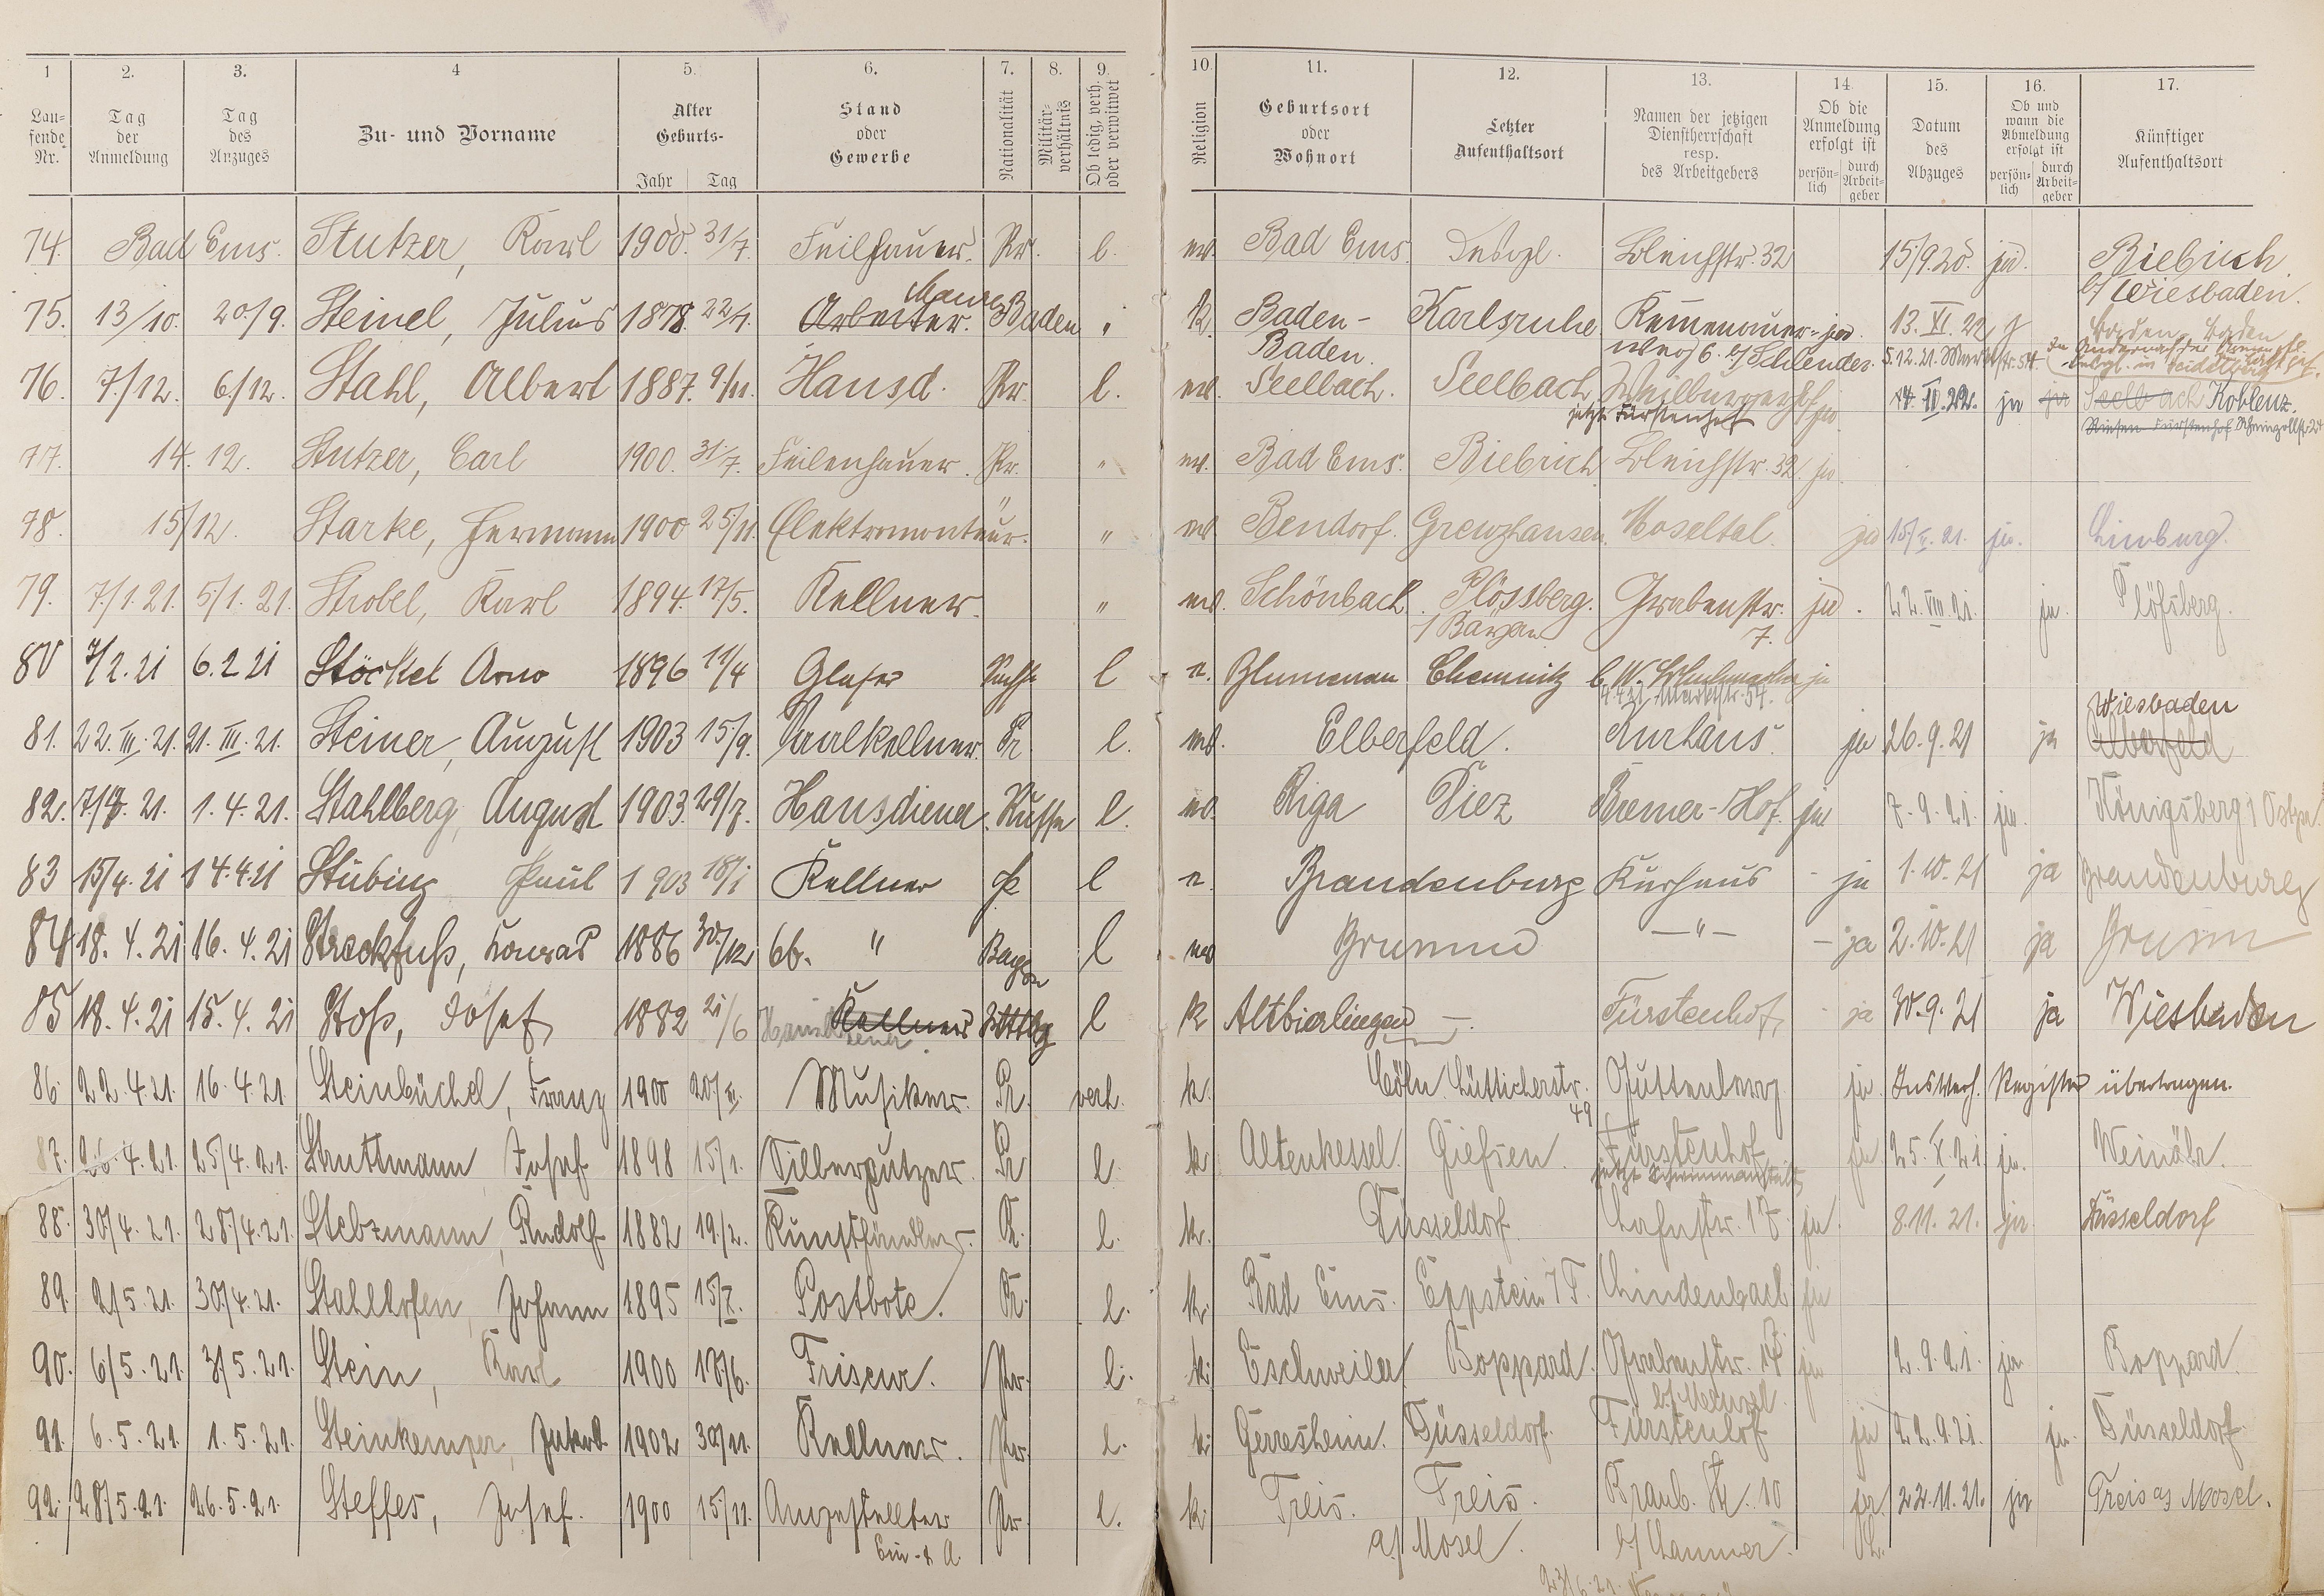 1 2. 3. 4 5. 6. 7. 8. 9. 10. 11. 12. 13. 14. 15. 16. 17.
Lau-fende Nr. Tag der Anmeldung Tag des Anzuges Zu- und Vorname Alter Geburts- Jahr Tag Stand oder Gewerbe Nationalität Militär-verhältnis Ob ledig, verh. oder verwitwet Religion Geburtsort oder Wohnort Letzter Aufenthaltsort Namen der jetzigen Dienstherrschaft resp. des Arbeitgebers Ob die Anmeldung erfolgt ist persön-lich durch Arbeit-geber Datum des Abzuges Ob und wann die Abmeldung erfolgt ist persön-lich durch Arbeit-geber Künftiger Aufenthaltsort
74. Bad Ems. Stutzer, Karl 1900. 31/7. Feilhauer. Pr. l. ev. Bad Ems. Bleichstr. 32 15/9.20. ja. Biebrich
b/ Wiesbaden.
75. 13/10. 20/9. Steinel, Julius 1878. 22/1. Arbeiter. Baden " k. Baden-Baden. Karlsruhe ja. 13. XI. 22
b/ Schlender. 5.12.21. Marktstr. 54
76. 7/12. 6/12. Stahl, Albert 1887. 9/11. Hausd. Pr. l. ev. Seelbach. Seelbach Weilburgerhof ja. 14. II. 22. ja ja Seelbach Koblenz.
jetzt Fürstenhof
77. 14. 12. Stutzer, Carl 1900. 31/7. Feilenhauer. Pr. " ev. Bad Ems. Biebrich Bleichstr. 32. ja.
78. 15/12. Starke, Hermann 1900 25/11. Elektromonteur. " ev. Bendorf. Grenzhausen. Moseltal. ja 15/II. 21. ja. Limburg.
79. 7/1.21. 5/1.21. Strobel, Karl 1894. 17/5. Kellner. " ev. Schönbach. Plössberg. Grabenstr. ja. 22. VIII. 21. ja. Plößberg.
/ Bayern 7.
80 7/2.21 6.2 21 Stöckel Arno 1896 11/4 Glaser Sachse l e. Blumenau Chemnitz b. W. ja
4.4.21. Marktstr. 54.
81. 22. III. 21. 21. III. 21. Steiner, August 1903 15/9. Saalkellner. Pr l. ev. Elberfeld. Kurhaus. ja 26.9.21 ja Wiesbaden Elberfeld
82. 7/4. 21. 1.4.21. Stahlberg, August 1903. 29/7. Hausdiener. Russe l. ev. Riga Diez Bremer-Hof. ja 7.9.21. ja. Königsberg / Ostpr.
83 15/4. 21 14.4.21 Stübing Paul 1903 18/1 Kellner Pr l e. Brandenburg Kurhaus - ja 1.10.21 ja Brandenburg
84 18. 4. 21 16. 4. 21 Streckfuß, Konrad 1886 30./12. Ob. " Bayer l ev Brunn — " — - ja 2.10.21 ja Brunn
85 18. 4. 21 15. 4. 21 Stoß, Josef 1882 21/6 Kellner Hausdiener Wttbg l k Altbierlingen —. Fürstenhof - ja 30.9.21 ja Wiesbaden
86. 22.4.21. 16.4.21. Steinbüchel, Franz 1900 20/ Musiker. Pr. verh. k. Cöln Lütticherstr. 49 Guttenberg ja. Ins Verh. Register übertragen.
87. 26.4.21. 25/4.21. Struttmann Josef 1898 15/1. Silberputzer. Pr l. k. Altenkessel. Gießen. Fürstenhof ja. 25. X. 21. ja. Weinähr.
jetzt Schwimmanstalt
88. 30/4.21. 28/4.21. Stebzmann, Rudolf 1882 19./2. Kunsthändler. Pr. l. k. Düsseldorf. Lahnstr. 17 ja. 8.11.21. ja Düsseldorf
89. 2/5.21. 30/4.21. Stahlhofen, Johann 1895 15/X. Postbote. Pr. l. k. Bad Ems. Eppstein / T. Lindenbach ja
90. 6/5.21. 3/5.21. Stein, Karl 1900 18/6. Friseur. Pr. l. k. Eschweiler Boppard. Grabenstr. 17 ja 2.9.21. ja. Boppard.
91. 6.5.21. 1.5.21. Steinkemper, 1902 30/11. Kellner. Pr. l. k. Gerresheim. Düsseldorf. Fürstenhof ja 22.9.21. ja. Düsseldorf.
92. 28/5.21. 26.5.21. Steffes, Josef. 1900 15/11. Angestellter Pr. l. k. Treis. Treis. Braub. Str. 10 ja. 22.11.21. ja Treis a/ Mosel.
a/ Mosel.